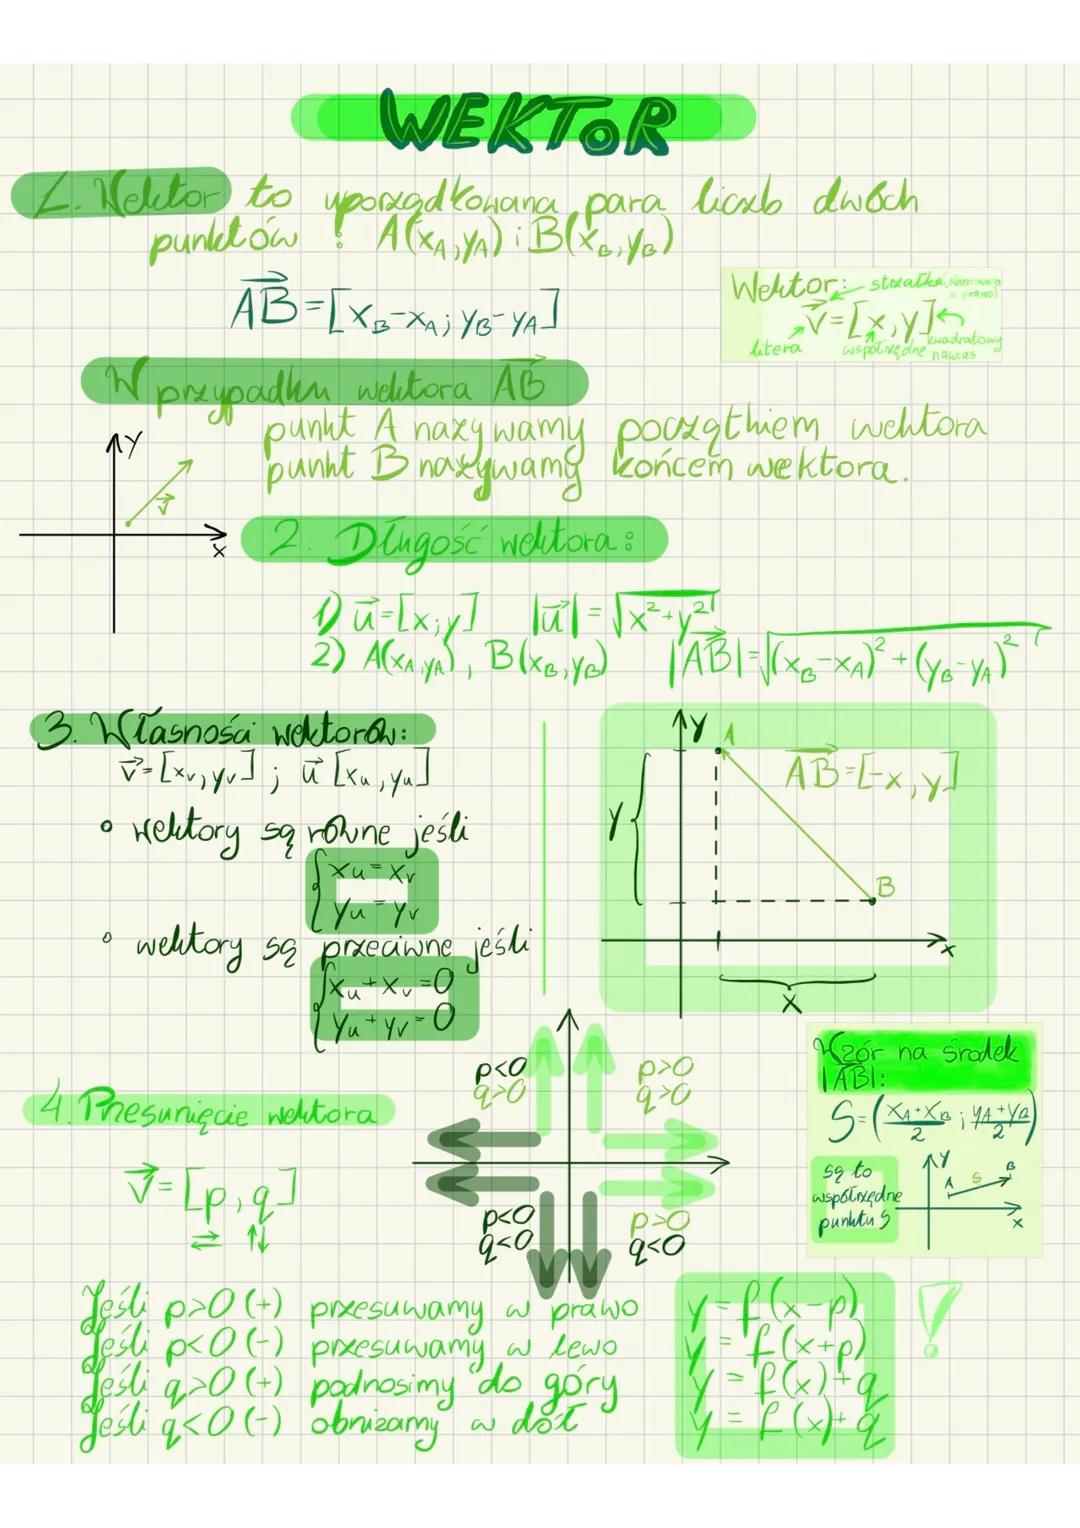 WEKTOR
1. Wektor to uporządkowana para liczb dwóch
punktów : A(x_A, y_A) i B(x_B, y_B)
AB→=[x_B-x_A; y_B-y_A]
Wektor: strzałka (skierowana
w prawo)
v→=[x,y]
litera współrzędne kwadratowy
nawias
W przypadku wektora AB→
punkt A nazywamy początkiem wektora
punkt B nazywamy końcem wektora.
Y
v→
x
2. Długość wektora:
1) u→=[x;y] |u→|=√x²+y²
2) A(x_A, y_A), B(x_B, y_B) |AB→|=√(x_B-x_A)²+(y_B-y_A)²
3. Własności wektorów:
v→=[x_v, y_v] ; u→ [x_u, y_u]
• wektory są równe jeśli
{x_u=x_v
y_u=y_v
• wektory są przeciwne jeśli
{x_u+x_v=0
y_u+y_v=0
Y
A
AB→=[-x, y]
Y
B
x
X
4. Przesunięcie wektora
v→=[p, q]
⇄ ↑↓
p<0
q>0
p>0
q>0
p<0
q<0
p>0
q<0
Wzór na środek
|AB|:
S=(x_A+x_B/2 ; y_A+y_B/2)
są to
współrzędne
punktu S
Y
A S B
x
Jeśli p>0 (+) przesuwamy w prawo
Jeśli p<0 (-) przesuwamy w lewo
Jeśli q>0 (+) podnosimy do góry
Jeśli q<0 (-) obniżamy w dół
y=f(x-p)
y=f(x+p)
y=f(x)+q
y=f(x)+q
!